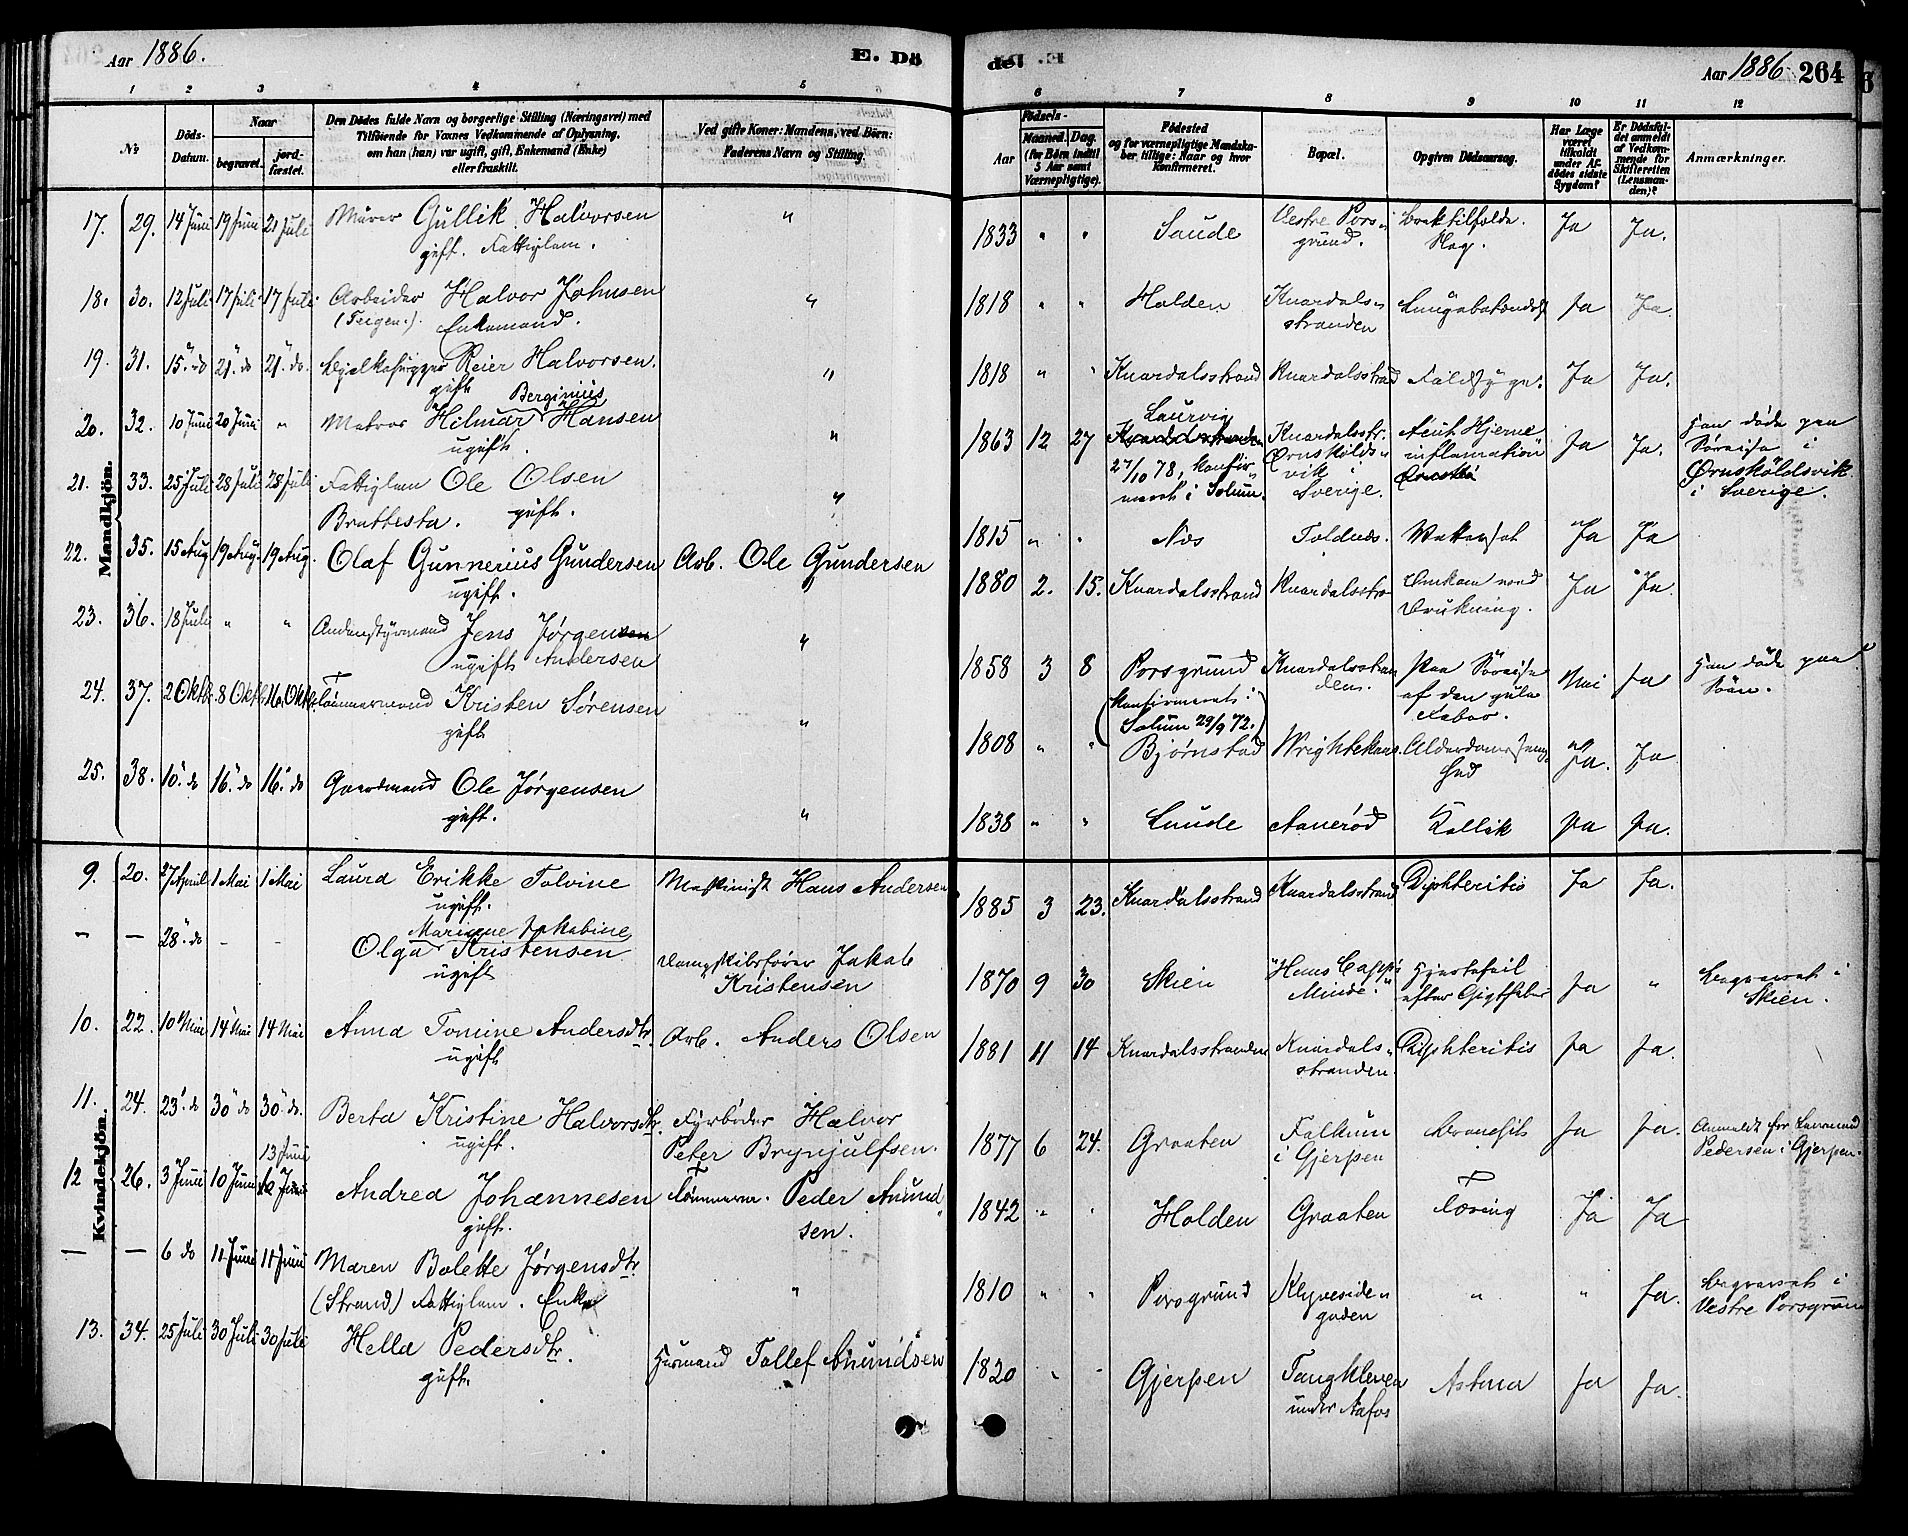 Aar 1886.
E. Dö
1 2 3 4 5
No
Döds-Datum.
Naar
begravet.
jordfæstet.
Den Dödes fulde Navn og borgerlige Stilling (Næringsvei) med
Tilföiende for Voxnes Vedkommende af Oplysning,
om han (hun) var ugift, gift, Enkemand (Enke)
eller fraskilt.
Ved gifte Koner: Mandens, ved Börn:
Faderens Navn og Stilling.
Mandkjön.
17. 29. 14 Juni 19 Juni 21 Juli Murer Gullik Halvorsen "
gift. Fattiglem.
18. 30. 12 Juli 17 Juli 17 Juli Arbeider Halvor Johnsen "
(Teigen.). Enkemand.
19. 31. 15" do 21" do 21" do. Reier Halvorsen. "
gift
Berginius
20. 32. 10 Juni 20 Juni " Matros Hilmar Hansen "
ugift.
21. 33. 25 Juli 28 Juli 28 Juli Fattiglem Ole Olsen "
Brattesta. gift.
22. 35. 15 Aug 19 Aug. 19 Aug. Olaf Gunnerius Gundersen Arb. Ole Gundersen
ugift.
23. 36. 18 Juli " " Andenstyrmand Jens Jørgensen "
ugift Andersen
24. 37. 2 Oktb. 8 Oktb. 16 Oktb. Tømmermand Kristen Sörensen "
gift
25. 38. 10" do 16" do 16" do Gaardmand Ole Jørgensen "
gift.
Kvindekjön.
9. 20. 27 April 1 Mai 1 Mai Laura Erikke Tolvine Maskinist Hans Andersen
ugift.
Mariane Jakobine
— — 28" do - - Olga Kristensen Dampskibsfører Jakob
ugift Kristensen
10. 22. 10 Mai 14 Mai 14 Mai Anna Tomine Andersdtr. Arb. Anders Olsen
ugift
11. 24. 23" do 30" do 30" do. Berta Kristine Halvorsdtr. Fyrbøder Halvor
ugift. Peter Brynjulfsen.
13 Juni
12 26. 3 Juni 10 Juni Andrea Johannesen Tömmerm. Peder Amund
gift. sen.
— — 6 do 11 Juni 11 Juni Maren Bolette Jørgensdtr. "
(Strand) Fattiglem. Enke
13. 34. 25 Juli 30 Juli 30 Juli Hella Pedersdtr. Husmand Tollef Amundsen
gift.
del
Aar 1886 264
6 7 8 9 10 11 12
Födsels-
Aar
Maaned. Dag.
(for Börn indtil
5 Aar samt
Værnepligtige).
Födested
og for værnepligtige Mandska-
ber tillige: Naar og hvor
konfirmeret.
Bopæl.
Opgiven Dödsaarsag.
Har Læge
været
tilkaldt
under Af-
dödes sidste
Sygdom?
Er Dödsfal-
det anmeldt
af Vedkom-
mende for
Skifteretten
(Lensman-
den)?
Anmærkninger.
1833 " " Saude Vestre Pors- Ja Ja.
grund. Slag.
1818 " " Holden Knardals- Lungebetændelse Ja Ja.
stranden
1818 " " Knardalsstrand Knardalsstrand Ja Ja.
Laurvig
1863 12 27 Knardalsstr. Acut Hjerne Ja Ja. Han døde paa
27/10 78, konfir- Ørnskölds- inflamation Søreise i
meret i Solum. vik i Ørnsköldsvik
Sverige. i Sverige.
1815 " " Næs Toldnæs. Vattersot Ja Ja
1880 2. 15. Knardalsstrand Knardalsstr. Omkom ved Ja Ja.
Drukning.
1858 3 8 Porsgrund Knardalsstran Paa Søreise Nei Ja Han døde paa
(konfirmeret i den. af den gule Søen.
Solum 29/9 72.) Feber.
1808 " " Bjørnstad Alderdomssvag Ja. Ja
hed
1838 " " Saude Aanerød Kollik Ja Ja.
1885 3 23. Knardalsstrand Knardalsstrand Diphteritis Ja Ja.
1870 9 30 Skien "Hans Capp's Hjertefeil Ja " Begravet i
Minde." efter Gigtfeber Skien.
1881 11 14 Knardalsstranden Knardals- Diphteritis Ja Ja.
stranden.
1877 6 24. Graaten Falkum Ja Ja. Anmeldt for Lensmand
i Gjerpen Pedersen i Gjerpen.
1842 " " Holden Graaten Tæring Ja Ja
1810 " " Porsgrund Klyveside- " " Ja. Begravet i
gaden Vestre Porsgrund
1820 " " Gjerpen Tangkleven Astma Ja Ja.
under Aafos